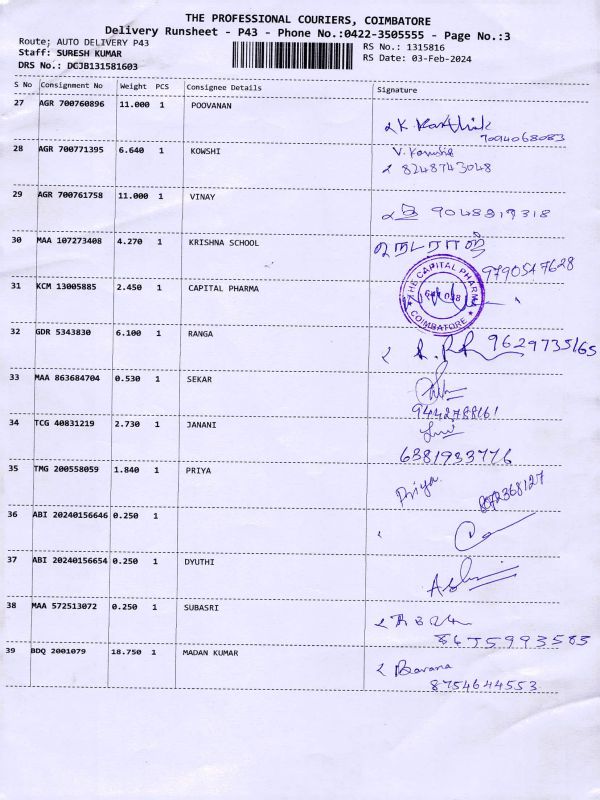 THE PROFESSIONAL COURIERS, COIMBATORE
Delivery Runsheet - P43 - Phone No.:0422-3505555 - Page No.:3
Route; AUTO DELIVERY P43
RS No.: 1315816
Staff: SURESH KUMAR
RS Date: 03-Feb-2024
DRS No.: DCJB131581603
S No Consignment No Weight PCS Consignee Details Signature
27 AGR 700760896 11.000 1 POOVANAN
K. Karthik
7094068083
28 AGR 700771395 6.640 1 KOWSHI
8248743048
29 AGR 700761758 11.000 1 VINAY
30 MAA 107273408 4.270 1 KRISHNA SCHOOL
நடராஜ்
9790547628
31 KCM 13005885 2.450 1 CAPITAL PHARMA
THE CAPITAL PHARMA
COIMBATORE
32 GDR 5343830 6.100 1 RANGA
9629735165
33 MAA 863684704 0.530 1 SEKAR
9442788161
34 TCG 40831219 2.730 1 JANANI
6381933776
35 TMG 200558059 1.840 1 PRIYA
Priya
36 ABI 20240156646 0.250 1
37 ABI 20240156654 0.250 1 DYUTHI
38 MAA 572513072 0.250 1 SUBASRI
39 BDQ 2001079 18.750 1 MADAN KUMAR
Bavana
8754644553